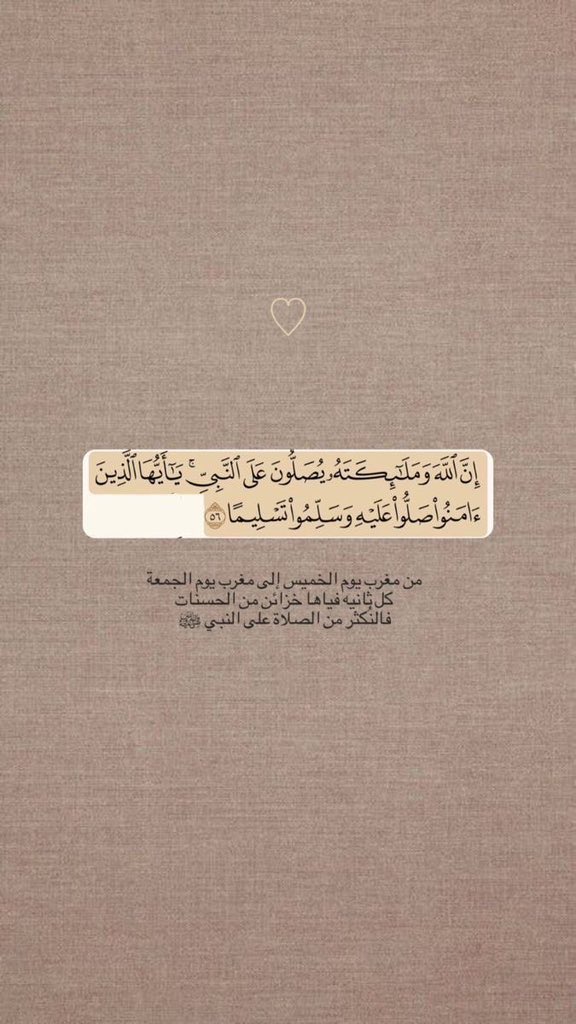 إِنَّ ٱللَّهَ وَمَلَٰٓئِكَتَهُۥ يُصَلُّونَ عَلَى ٱلنَّبِيِّۚ يَٰٓأَيُّهَا ٱلَّذِينَ
ءَامَنُوا۟ صَلُّوا۟ عَلَيْهِ وَسَلِّمُوا۟ تَسْلِيمًا ٥٦
من مغرب يوم الخميس إلى مغرب يوم الجمعة
كل ثانيه فياها خزائن من الحسنات
فالنُكثر من الصلاة على النبي ﷺ